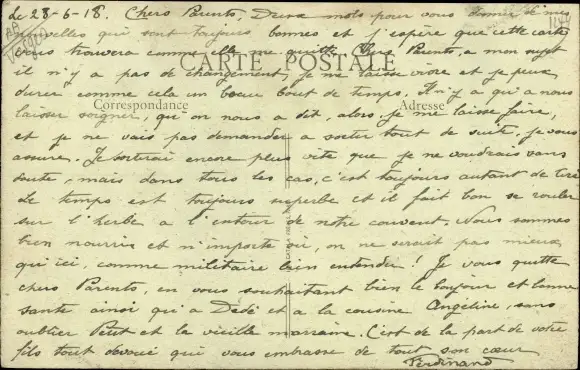 Le 28-6-18. Chers Parents, Deux mots pour vous donner de mes
nouvelles qui sont toujours bonnes et j'espère que cette carte
vous trouvera comme elle me quitte. Chers Parents, a mon sujet
CARTE POSTALE
il n'y a pas de changement, je me laisse vivre et je peux
durer comme cela un beau bout de temps. Il n'y a qu'a nous
Correspondance
Adresse
laisser soigner, qu'on nous a dit, alors, je me laisse faire,
et je ne vais pas demander a sortir tout de suite, je vous
assure. Je sortirai encore plus vite que je ne voudrais sans
doute, mais dans tous les cas, c'est toujours autant de tiré
Le temps est toujours superbe et il fait bon se rouler
sur l'herbe a l'entour de notre couvent. Nous sommes
bien nourris et n'importe où, on ne serait pas mieux
qu'ici, comme militaire bien entendu! Je vous quitte
chers Parents, en vous souhaitant bien le bonjour et bonne
santé ainsi qu'a Dédé et a la cousine Angéline, sans
oublier Petit et la vieille marraine. C'est de la part de votre
fils tout dévoué qui vous embrasse de tout son cœur
Ferdinand